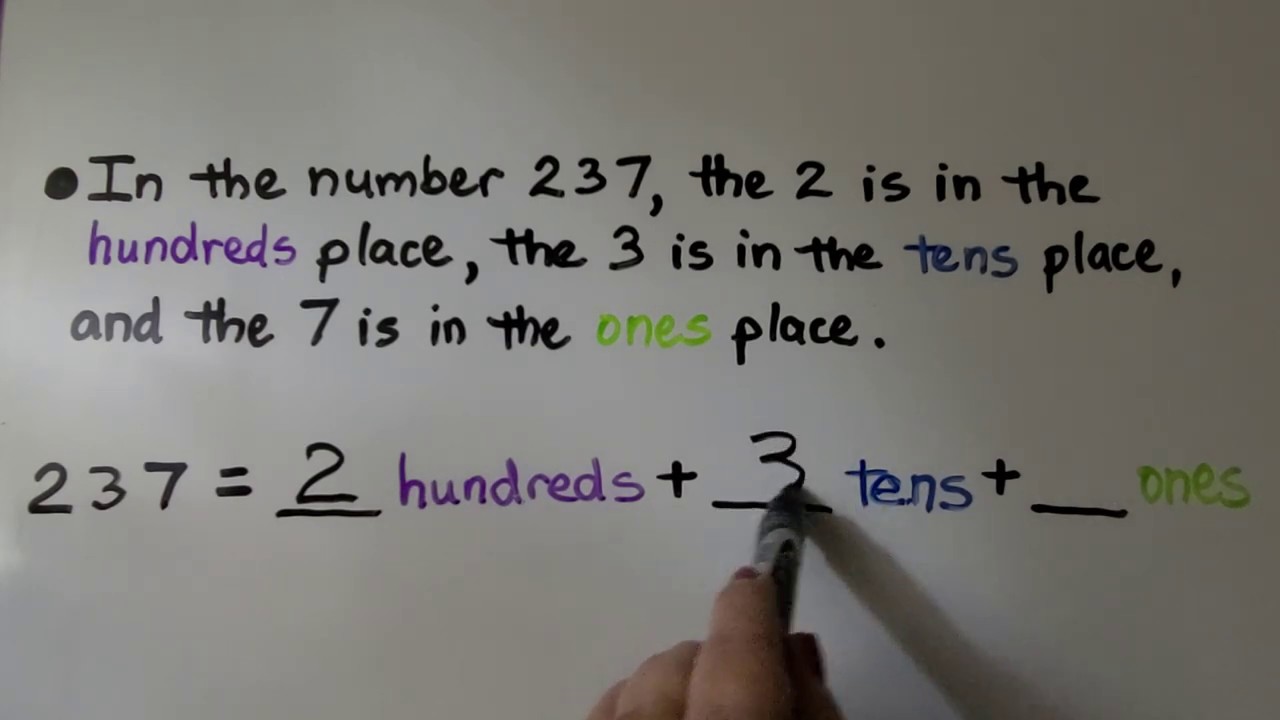 • In the number 237, the 2 is in the
hundreds place, the 3 is in the tens place,
and the 7 is in the ones place.
237 = 2 hundreds + 3 tens + __ ones